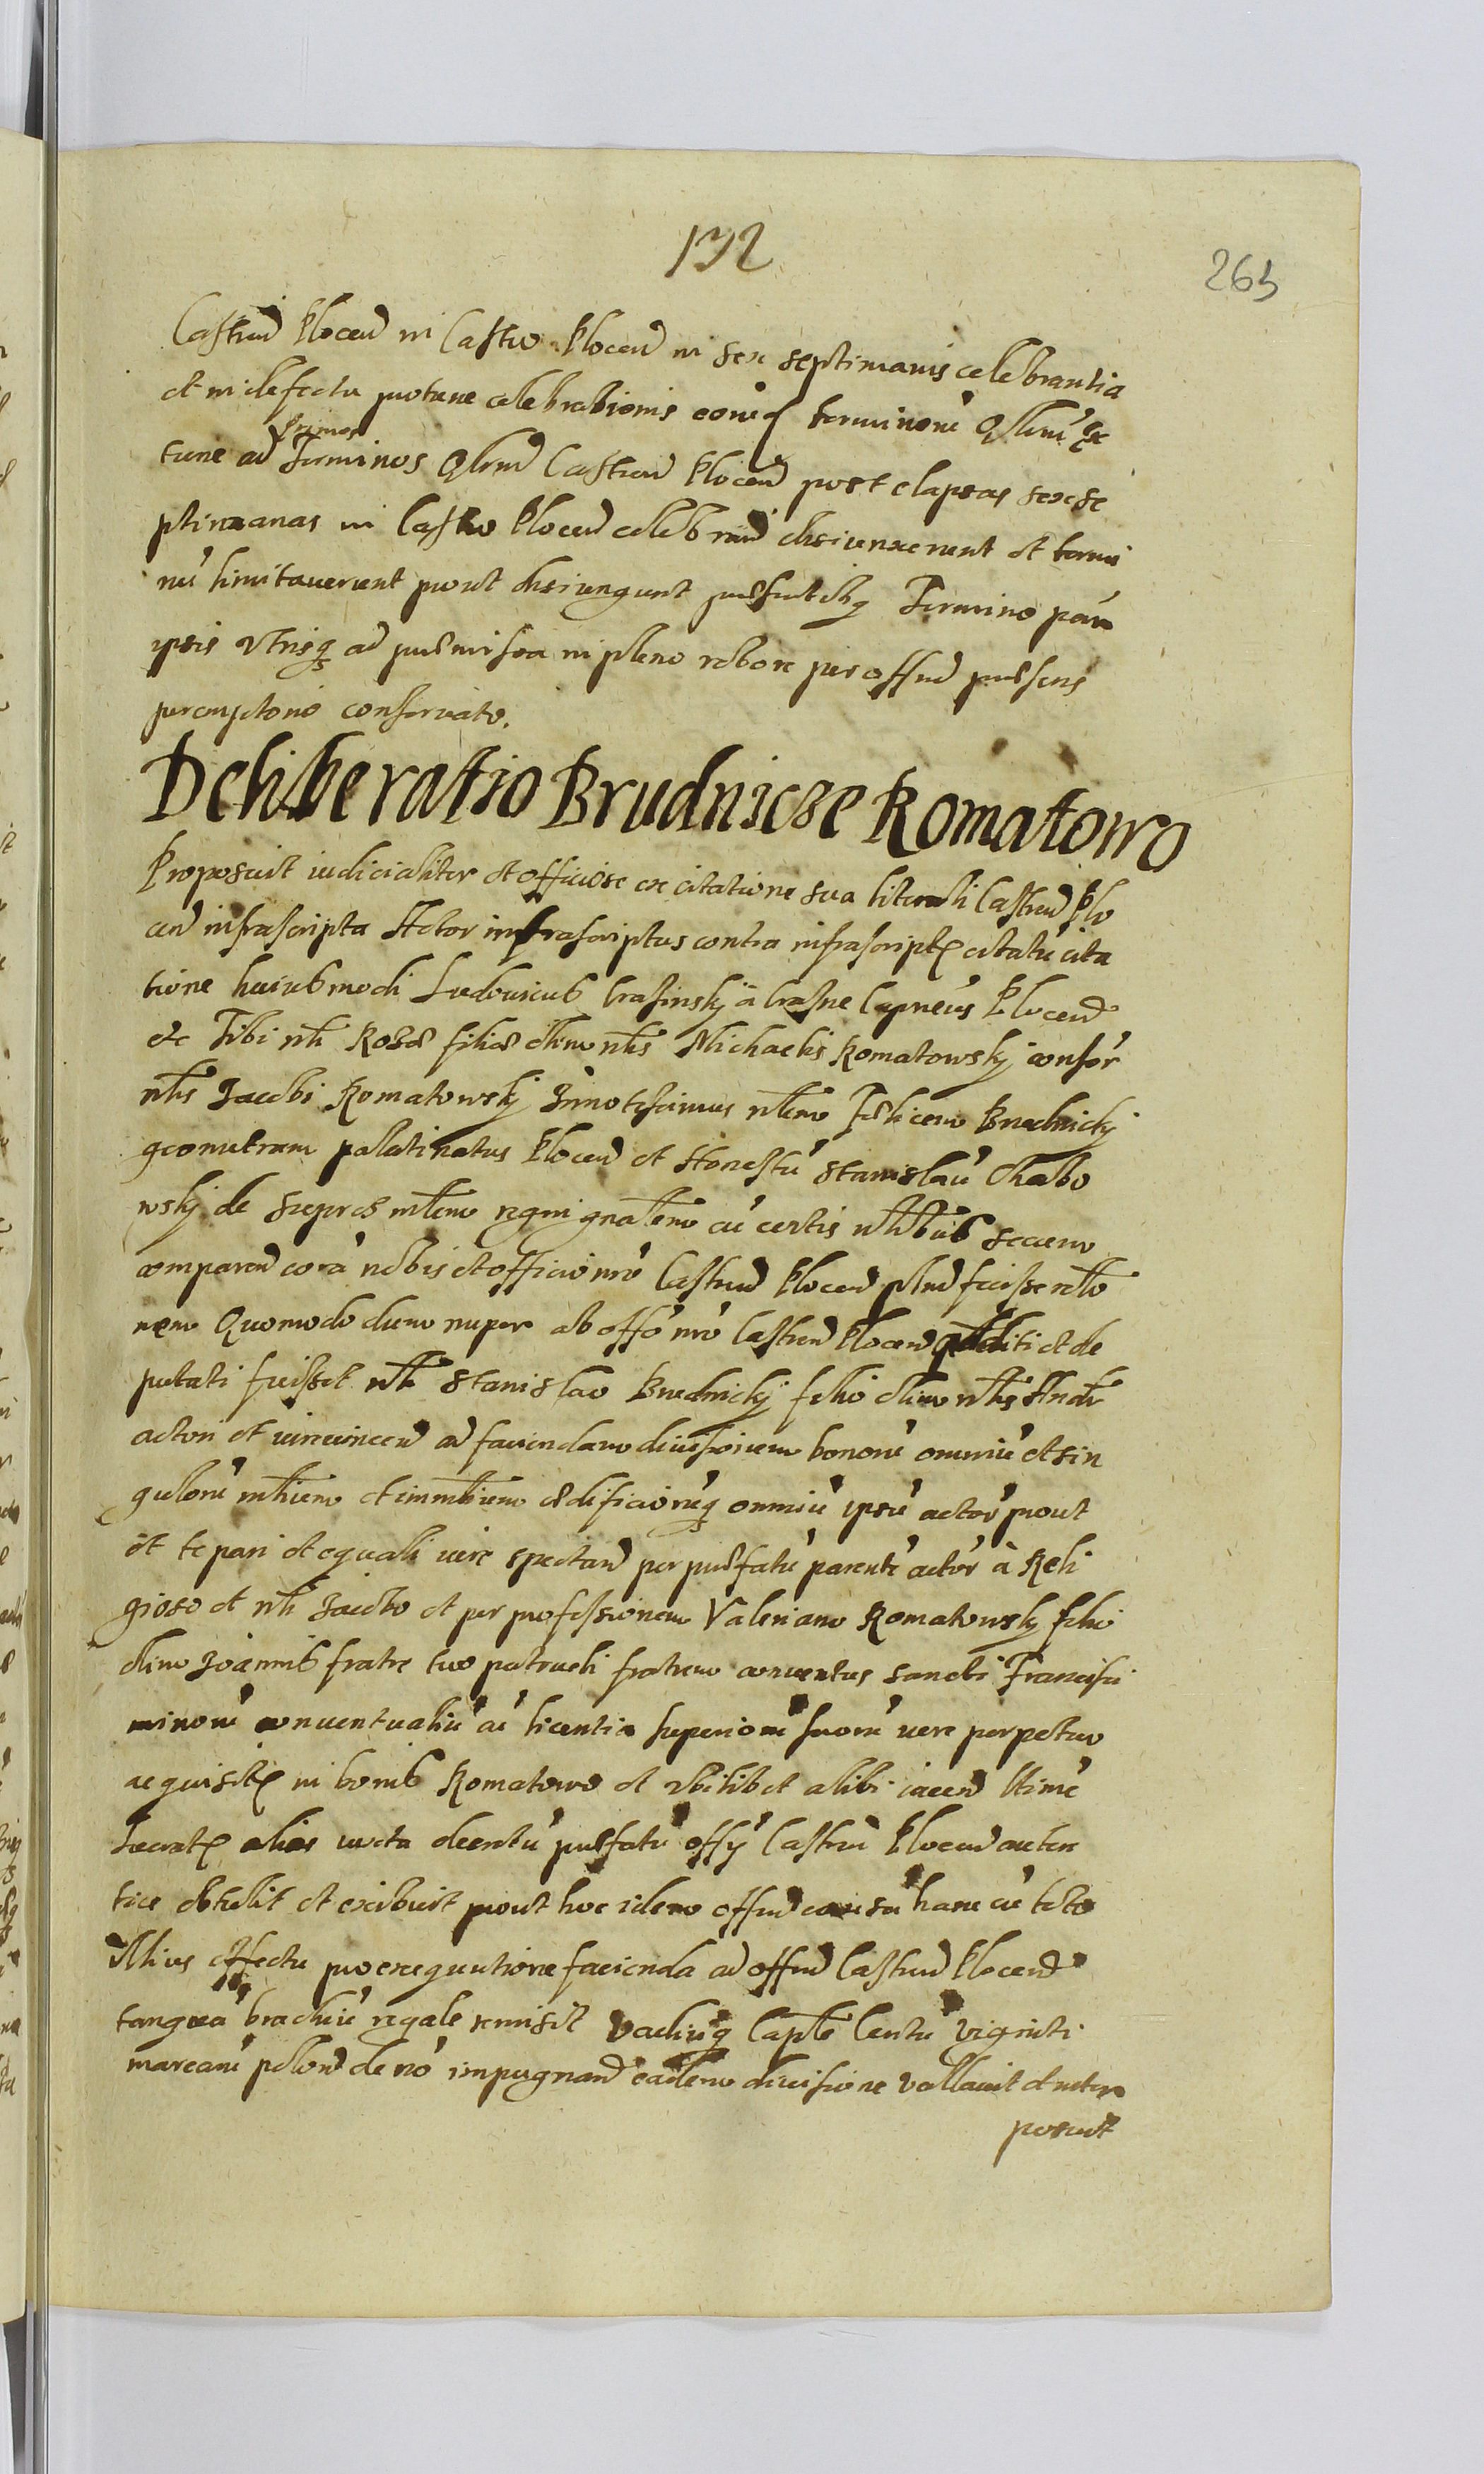 132
265
Castren Plocen in Castro Plocen in sex septimanis celebrantia
et in defectu protunc celebrationis eoru terminoru Qlum Ex
tunc ad primos Terminos Qlrum Castren Plocen post elapsas sex se
ptimanas in Castro Plocen celebran disiunxerunt et termi
nu limitauerunt prout disiungunt Termino par
ipsis vtrisq ad præmissa in pleno robore per offm præsens
peremptorio conseruato.
Deliberatio Brudnicze Romatowo
Proposuit iudicialiter et officiose ex citatione sua literali Castren Plo
cen infrascripta Actor infrascriptus contra infrascript citatu cita
tione huiusmodi Ludouicus Crasinskij a Crasne Capneus Plocen
etc Tibi nli Rosæ filiæ olim nlis Michaelis Romatowskij consor
nlis Jacobi Romatowskij Innotescimus nlem Felicem Brudnickij
geometram palatinatus Plocen et Honestu Stanislau Chabo
wskij de Sieprcs mlem regni gnalem cu certis nlibus secum
comparen cora nobis et officio nro Castren Plocen plnd fecisse relto
nem Quomodo dum nuper ab offo nro Castren Plocen additi et de
putati fuisset nli Stanislao Brudnickij filio olim nlis Andr
actori et ad faciendam diuisionem bonoru omniu et sin
guloru mbium et immbium ædificioruq omniu ipsu actor prout
et te pari et equali iure spectan per præfatu parente actor à Reli
gioso et nli Jacobo et per professionem Valeriano Romatowskij filio
olim Joannis fratre tuo patrueli fratrum conuentus sancti Francisci
minoru conuentualiu cu licentia superioru suoru iure perpetuo
acquisit in bonis Romatowo et vbilibet alibi iacen ltime
alias iuxta decretu præfatu offij Castren Plocen auten
tice obtulit et exibuit prout hoc idem offm causa hanc cu toto
illius effectu pro exequutione facienda ad offm Castren Plocen
tanqua brachiu regale remisit vadiuq Caple Centu viginti
marcaru polon de no impugnan eadem diuisione vallauit et inter
posuit